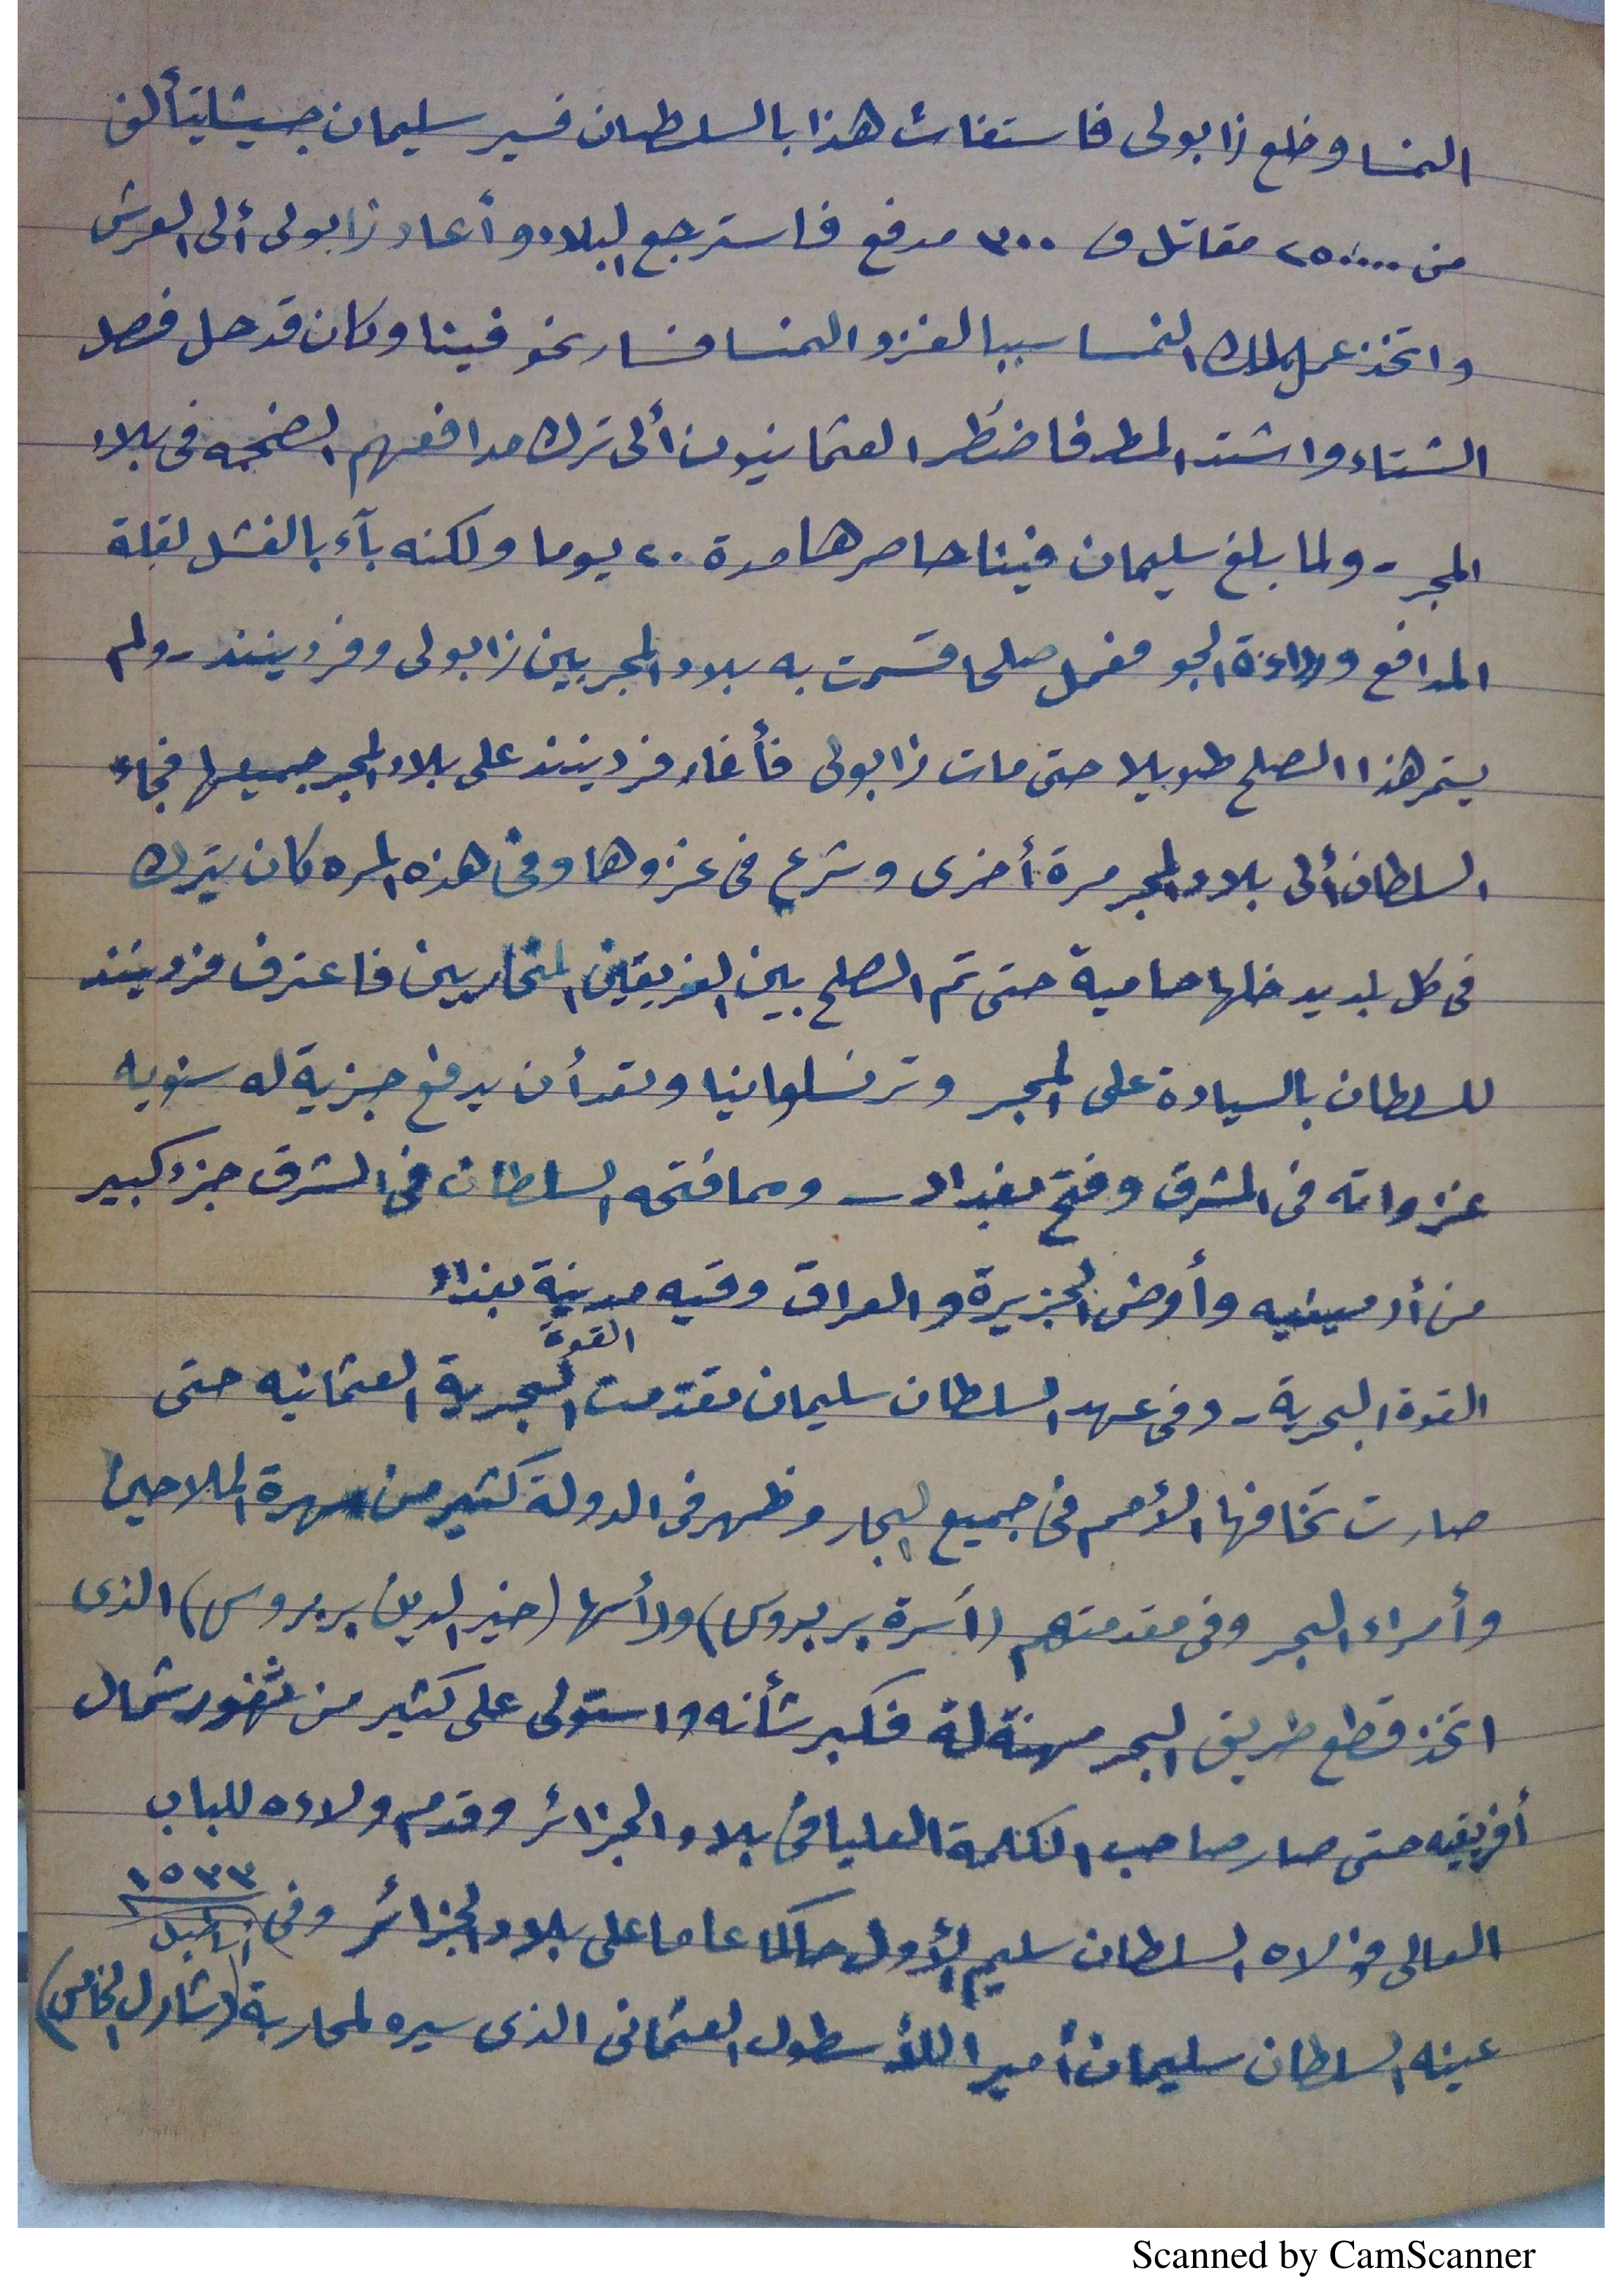 النمسا وخلع زابولى فاستغاث هذا بالسلطان فسير سليمان جيشا يتألف
من ٢٥٠٠٠٠ مقاتل و ٣٠٠ مدفع فاسترجع البلاد وأعاد زابولى ألى العرش
واتخذ عمل ملك النمسا سببا لغزو النمسا فسار نحو فينا وكان قد حل فصل
الشتاء واشتد المطر فاضطر العثمانيون ألى ترك مدافعهم الضخمه فى بلاد
المجر - ولما بلغ سليمان فينا حاصرها مدة ٢٠ يوما ولكنه بآء بالفشل لقلة
المدافع ورداءة الجو فعمل صلحا قسمت به بلاد المجر بين زابولى وفردينند - ولم
يستمر هذا الصلح طويلا حتى مات زابولى فأغار فردينند على بلاد المجر جميعها فجاء
السلطان ألى بلاد المجر مرة أخرى وشرع فى غزوها وفى هذه المره كان يترك
فى كل بلد يدخلها حامية حتى تم الصلح بين الفريقين المتحاربين فاعترف فردينند
للسلطان بالسيادة على المجر وترنسلوانيا وتعهد أن يدفع جزية له سنويه
غزواته فى المشرق وفتح بغداد - ومما فتحه السلطان فى الشرق جزء كبير
من أرمينيه وأرض الجزيرة والعراق وفيه مدينة بغداد
القوة البحرية - وفى عهد السلطان سليمان تقدمت القوة البحرية العثمانيه حتى
صارت تخافها الأمم فى جميع البحار وظهر فى الدولة كثير من مهرة الملاحين
وأمراء البحر وفى مقدمتهم (أسرة بربروس) ورأسها (خير الدين بربروس) الذى
اتخذ قطع طريق البحر مهنة له فكبر شأنه واستولى على كثير من ثغور شمال
أفريقيه حتى صار صاحب الكلمة العليا فى بلاد الجزائر وقدم ولاءه للباب
العالى فولاه السلطان سليم الأول حاكما عاما على بلاد الجزائر وفى ١٥٣٣
عينه السلطان سليمان أميرا للأسطول العثمانى الذى سيره لمحاربة (شارل الخامس)
Scanned by CamScanner